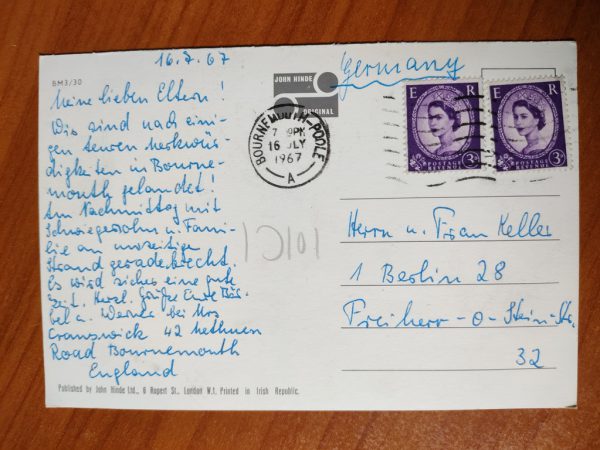 BM3/30
16.7.67
Germany
JOHN HINDE
ORIGINAL
E R
POSTAGE
REVENUE
3D
E R
POSTAGE
REVENUE
3D
BOURNEMOUTH-POOLE
16 JLY
1967
A
Meine lieben Eltern!
Wir sind nach eini-
gen teuren Merkwür-
digkeiten in Bourne-
mouth gelandet!
Am Nachmittag mit
Schwiegersohn u. Fami-
lie am
Strand geradebrecht.
Es wird sicher eine gute
Zeit. Herzl. Grüße Eure Bär-
bel u. Werner bei Mrs
Cranswick 42 Methuen
Road Bournemouth
England
Herrn u. Frau Keller
1 Berlin 28
Freiherr-v-Stein-Str.
32
Published by John Hinde Ltd., 6 Rupert St., London W.1. Printed in Irish Republic.